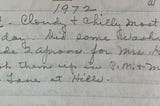 1972
. Cloudy + chilly most
day. Did some Washi
de 2 aprons for Mrs
k them up in P.M. + m
Jane at Hills.